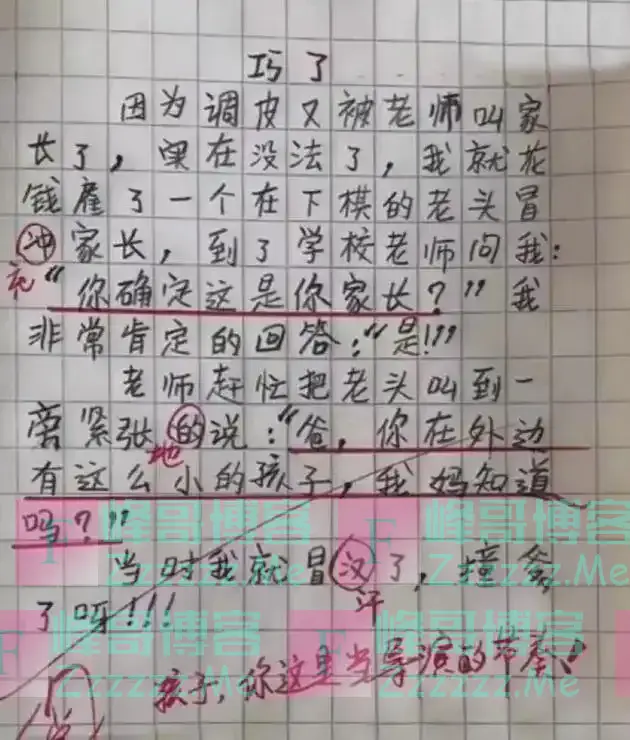 巧了
因为调皮又被老师叫家
长了，实在没法了，我就花
钱雇了一个在下棋的老头冒
冲家长，到了学校老师问我：
充
“你确定这是你家长？”我
非常肯定的回答：“是！”
老师赶忙把老头叫到一
旁紧张的说：“爸，你在外边
地
有这么小的孩子，我妈知道
吗？”
当时我就冒汉了，撞爹
汗
了呀！！！
孩子，你这里当导演的节奏！
峰哥博客
Zzzzzz.Me